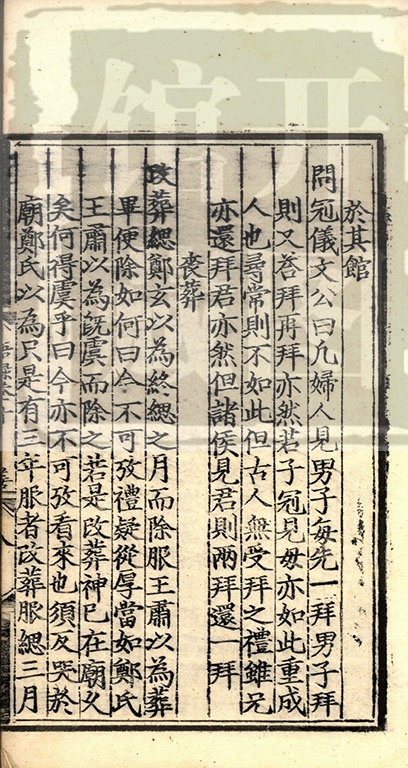 於其館
問冠儀文公曰凡婦人見男子每先一拜男子拜
則又荅拜再拜亦然若子冠見毋亦如此重成
人也尋常則不如此但古人無受拜之禮雖兄
亦還拜君亦然但諸侯見君則兩拜還一拜
喪葬
改葬緦鄭玄以為終緦之月而除服王肅以為葬
畢便除如何曰今不可攷禮疑從厚當如鄭氏
王肅以為既虞而除之若是改葬神已在廟久
矣何得虞乎曰今亦不可攷看來也須反哭於
廟鄭氏以為只是有三年服者改葬服緦三月